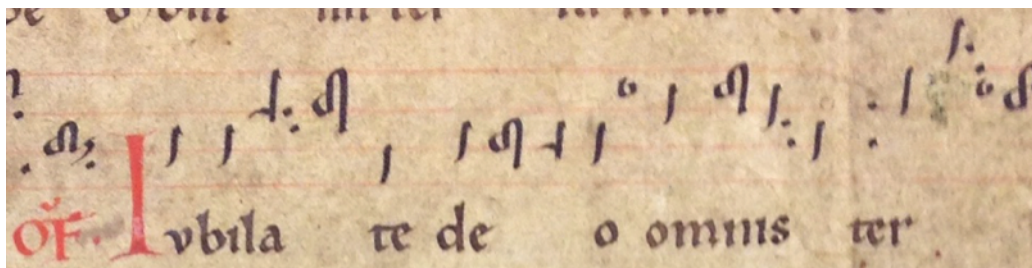 OF. Iubila te de o omnis ter